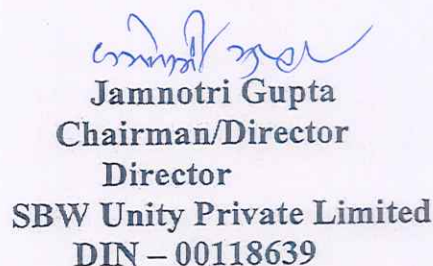 Jamnotri Gupta
Chairman/Director
Director
SBW Unity Private Limited
DIN – 00118639